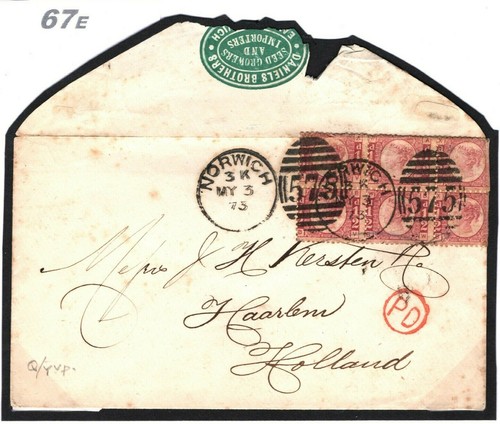 67E
DANIELS BROTHERS
SEED GROWERS
AND
IMPORTERS
NORWICH
3 K
MY 3
73
575
575
Messrs J H Kersten &
Haarlem
Holland
PD